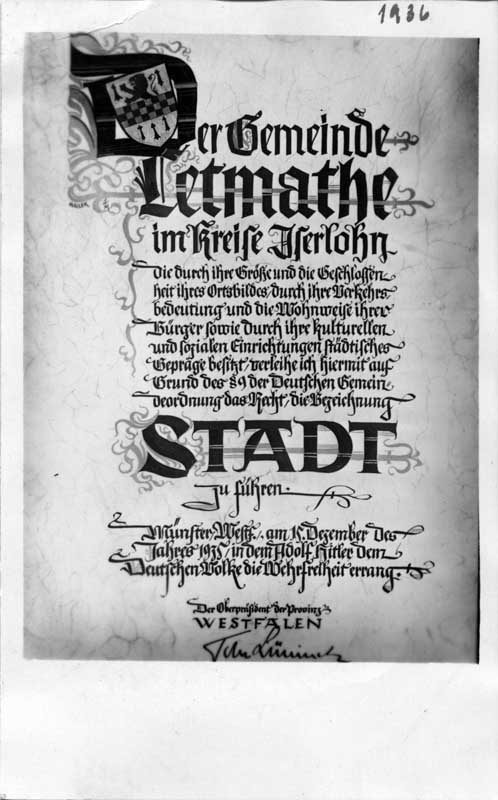 1936
Der Gemeinde
Letmathe
im Kreise Iserlohn
die durch ihre Größe und die Geschlossen
heit ihres Ortsbildes, durch ihre Verkehrs
bedeutung und die Wohnweise ihrer
Bürger sowie durch ihre kulturellen
und sozialen Einrichtungen städtisches
Gepräge besitzt, verleihe ich hiermit auf
Grund des §9 der Deutschen Gemein
deordnung das Recht, die Bezeichnung
STADT
zu führen.
Münster, Westf., am 15. Dezember des
Jahres 1935, in dem Adolf Hitler dem
Deutschen Volke die Wehrfreiheit errang.
Der Oberpräsident der Provinz
WESTFALEN